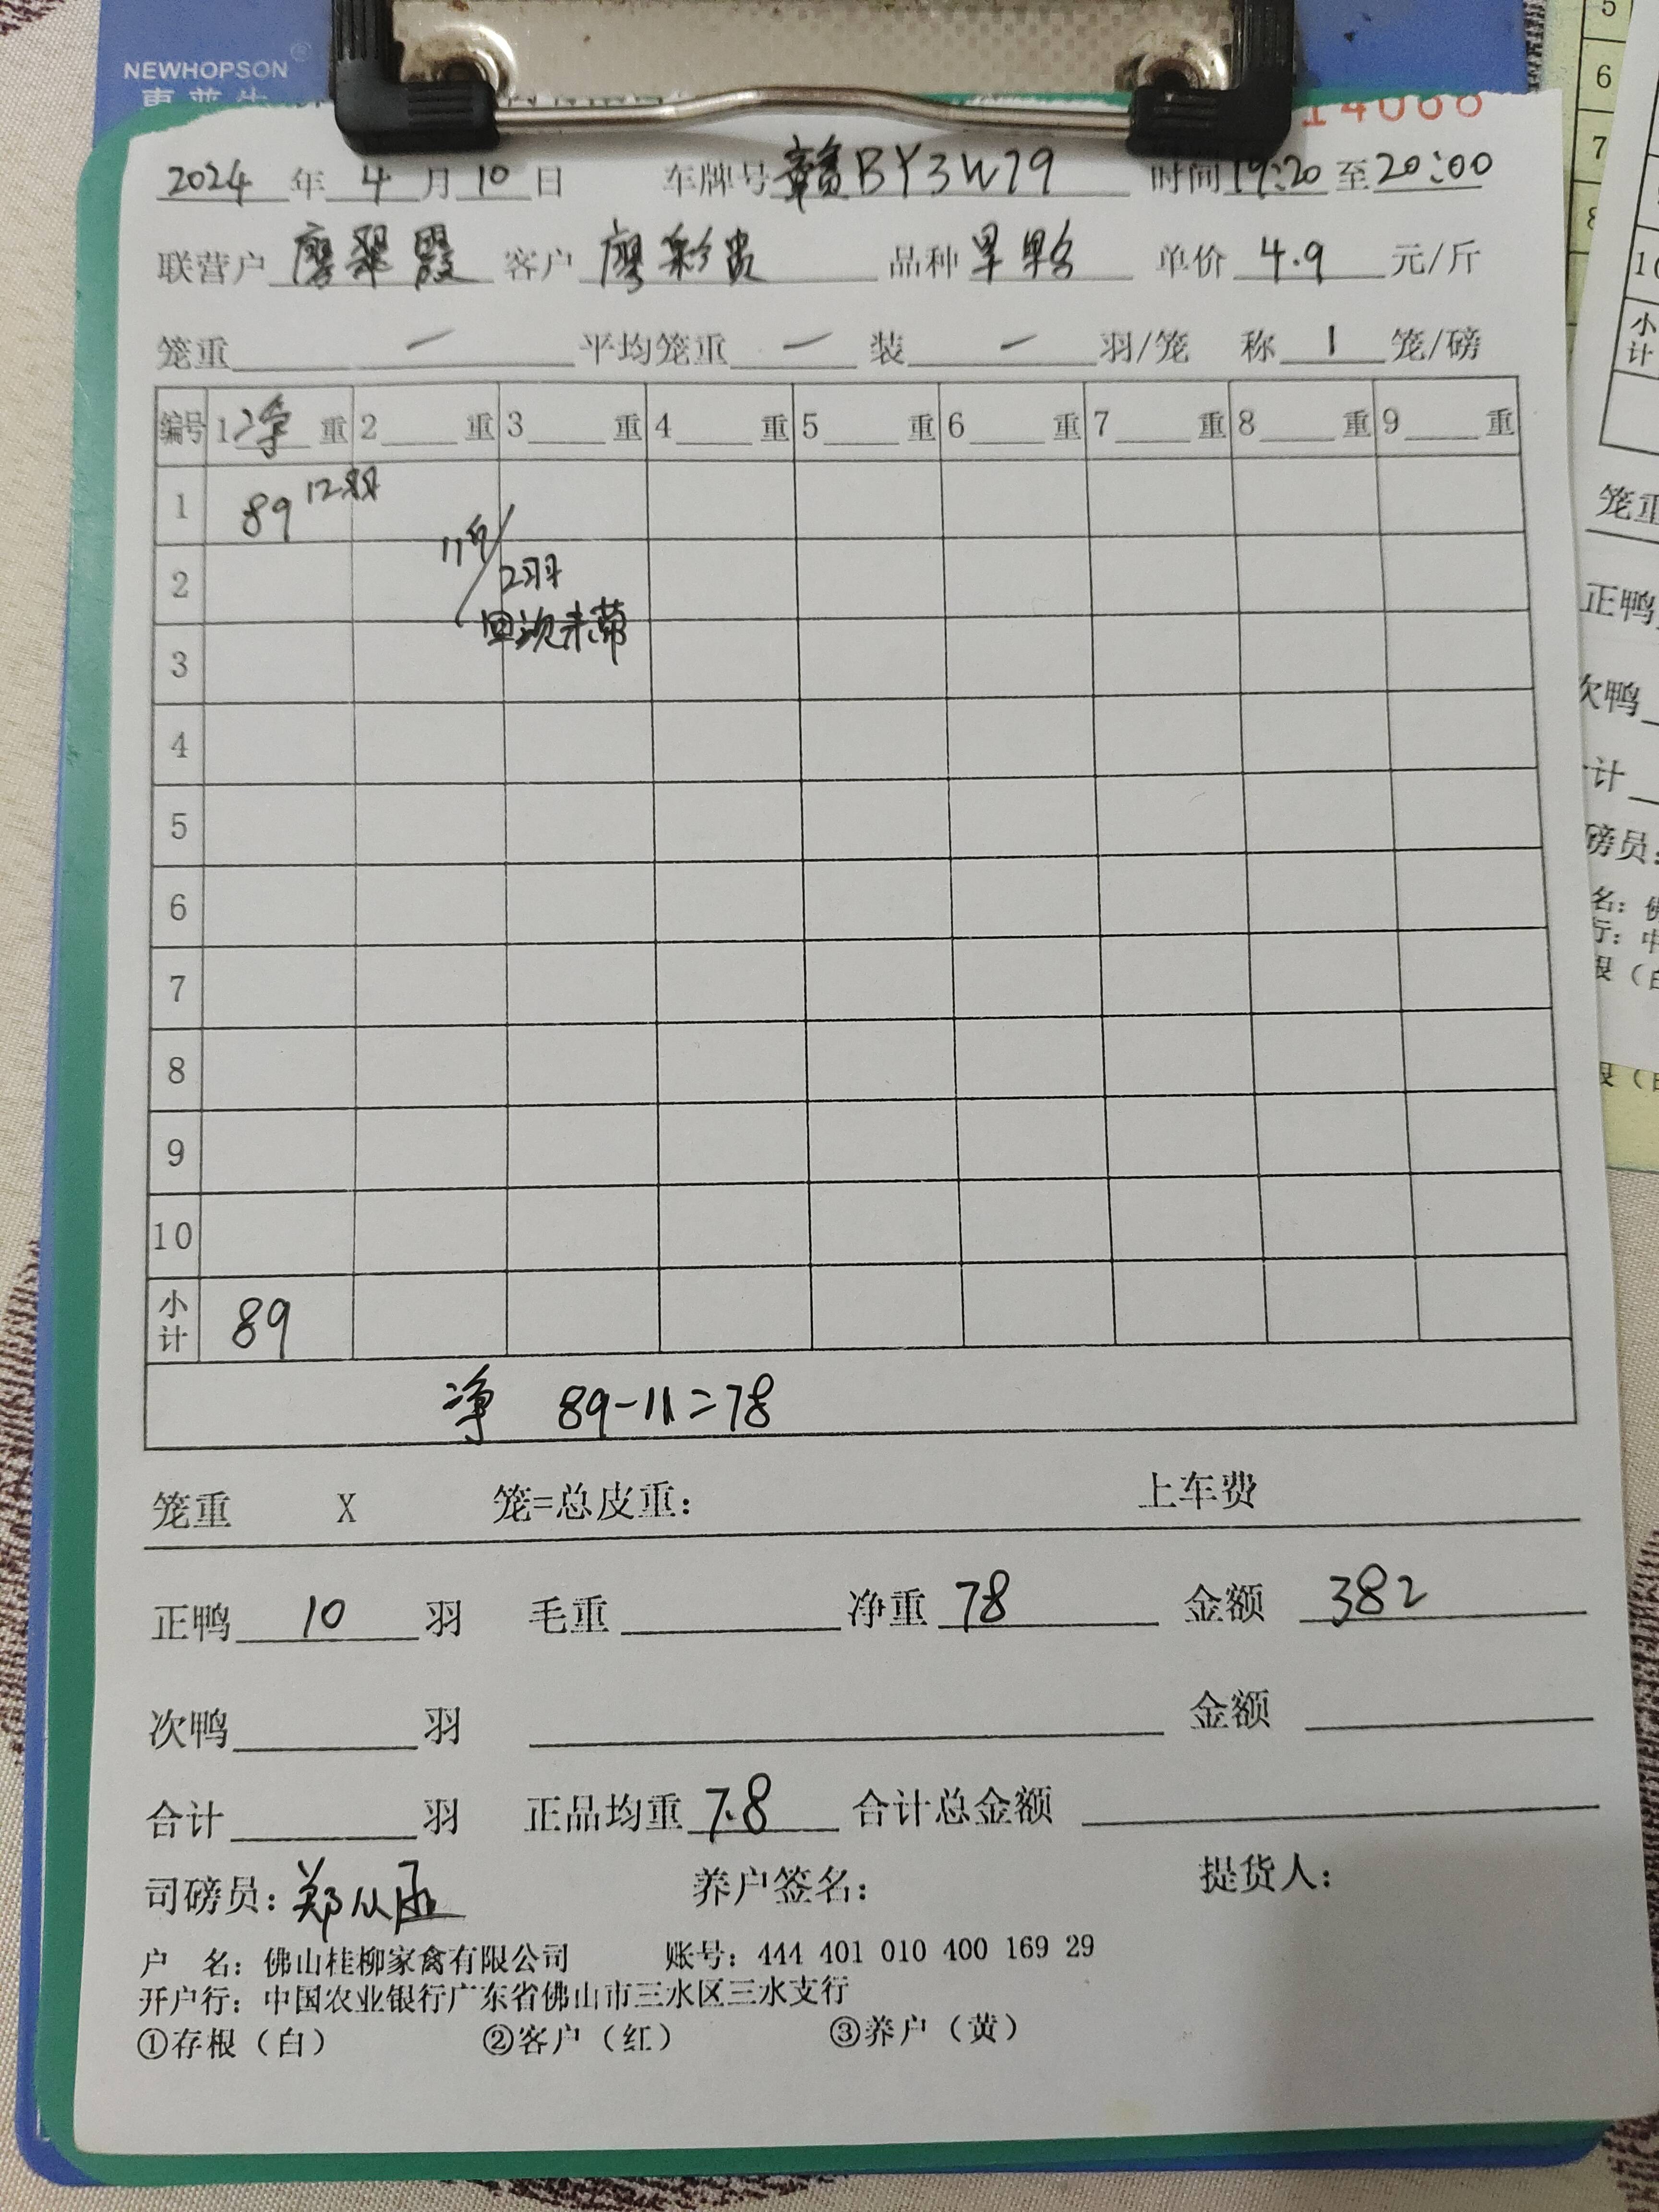 NEWHOPSON®
14068
2024 年 4 月 10 日 车牌号 赣BY3W79 时间 19:20 至 20:00
联营户 廖翠霞 客户 廖彩贵 品种 单价 4.9 元/斤
笼重 一 平均笼重 一 装 一 羽/笼 称 1 笼/磅
编号 1 净 重 2 重 3 重 4 重 5 重 6 重 7 重 8 重 9 重
1 89 12羽
11斤/2羽
2
回次未带
3
4
5
6
7
8
9
10
小计 89
净 89-11=78
笼重 X 笼=总皮重： 上车费
正鸭 10 羽 毛重 净重 78 金额 382
次鸭 羽 金额
合计 羽 正品均重 7.8 合计总金额
司磅员：郑 养户签名： 提货人：
户 名：佛山桂柳家禽有限公司 账号：444 401 010 400 169 29
开户行：中国农业银行广东省佛山市三水区三水支行
①存根（白） ②客户（红） ③养户（黄）
5
6
7
8
10
小计
笼重
正鸭
次鸭
计
磅员：
名：佛
行：中
根（白